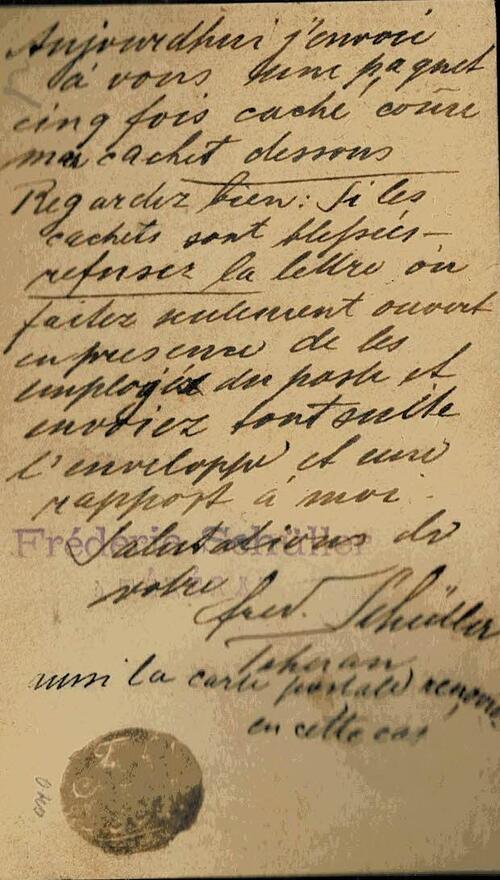 Aujourdhui j'envoie
à vous une paquet
cinq fois caché
ma cachet dessous
Regardez bien: Si les
cachets sont blessées –
refusez la lettre ou
faites seulement ouvert
en presence de les
employés du poste et
envoiez tout suite
l'enveloppe et une
rapport à moi.
Fréderic Schüller
Salutations de
votre
fred. Schüller
Teheran
aussi la carte postale
en cette cas